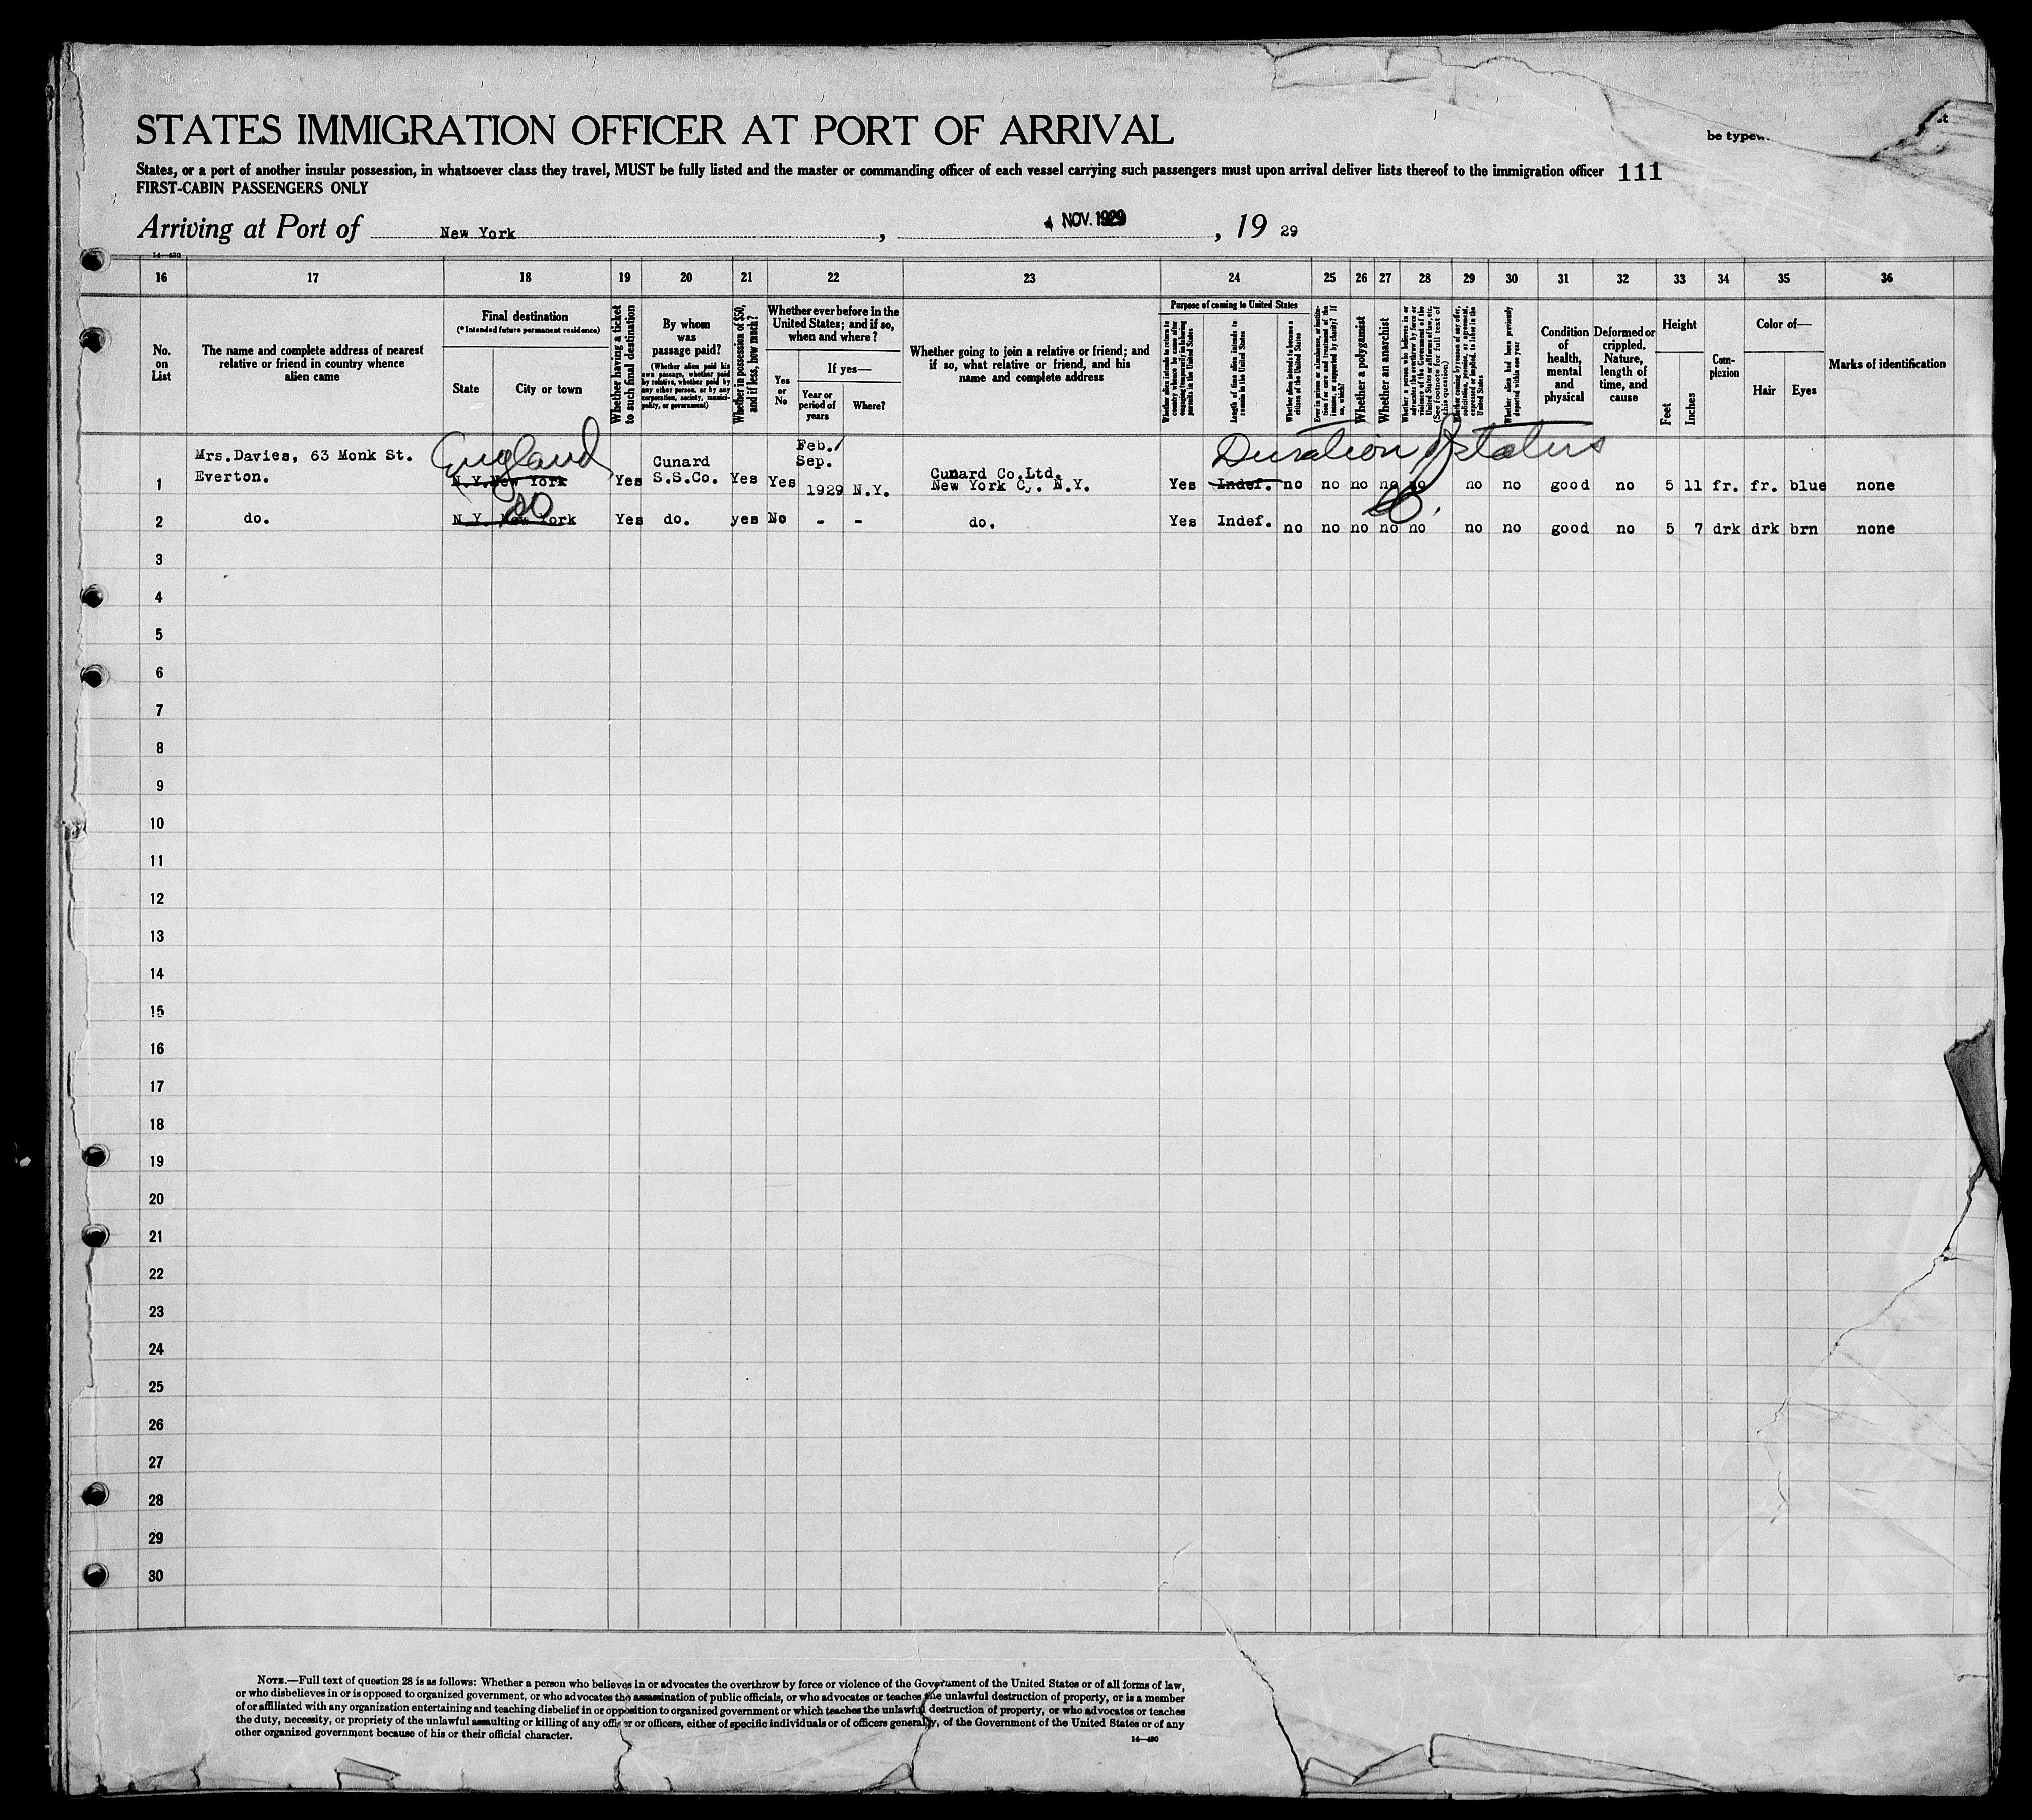 STATES IMMIGRATION OFFICER AT PORT OF ARRIVAL
be typew
States, or a port of another insular possession, in whatsoever class they travel, MUST be fully listed and the master or commanding officer of each vessel carrying such passengers must upon arrival deliver lists thereof to the immigration officer 111
FIRST-CABIN PASSENGERS ONLY
Arriving at Port of New York, NOV. 1929, 19 29
14—430
16 17 18 19 20 21 22 23 24 25 26 27 28 29 30 31 32 33 34 35 36
No. on List
The name and complete address of nearest relative or friend in country whence alien came
Final destination
(*Intended future permanent residence)
State
City or town
Whether having a ticket to such final destination
By whom was passage paid?
(Whether alien paid his own passage, whether paid by relative, whether paid by any other person, or by any corporation, society, municipality, or government)
Whether in possession of $50, and if less, how much?
Whether ever before in the United States; and if so, when and where?
Yes or No
If yes—
Year or period of years
Where?
Whether going to join a relative or friend; and if so, what relative or friend, and his name and complete address
Purpose of coming to United States
Whether alien intends to return to country whence he came after engaging temporarily in laboring pursuits in the United States
Length of time alien intends to remain in the United States
Whether alien intends to become a citizen of the United States
Ever in prison or almshouse, or institution for care and treatment of the insane, or supported by charity? If so, which?
Whether a polygamist
Whether an anarchist
(See footnote for full text of this question)
Whether alien had been previously deported within one year
Condition of health, mental and physical
Deformed or crippled. Nature, length of time, and cause
Height
Feet
Inches
Complexion
Color of—
Hair
Eyes
Marks of identification
England
Duration of status
1 Mrs.Davies, 63 Monk St. Everton. N.Y. New York Yes Cunard S.S.Co. Yes Yes Feb./ Sep. 1929 N.Y. Cunard Co.Ltd. New York Cy. N.Y. Yes Indef. no no no no no no no good no 5 11 fr. fr. blue none
do
do.
2 do. N.Y. New York Yes do. yes No - - do. Yes Indef. no no no no no no no good no 5 7 drk drk brn none
3
4
5
6
7
8
9
10
11
12
13
14
15
16
17
18
19
20
21
22
23
24
25
26
27
28
29
30
NOTE.—Full text of question 28 is as follows: Whether a person who believes in or advocates the overthrow by force or violence of the Government of the United States or of all forms of law,
or who disbelieves in or is opposed to organized government, or who advocates the assassination of public officials, or who advocates or teaches the unlawful destruction of property, or is a member
of or affiliated with any organization entertaining and teaching disbelief in or opposition to organized government or which teaches the unlawful destruction of property, or who advocates or teaches
the duty, necessity, or propriety of the unlawful assaulting or killing of any officer or officers, either of specific individuals or of officers generally, of the Government of the United States or of any
other organized government because of his or their official character.
14—430